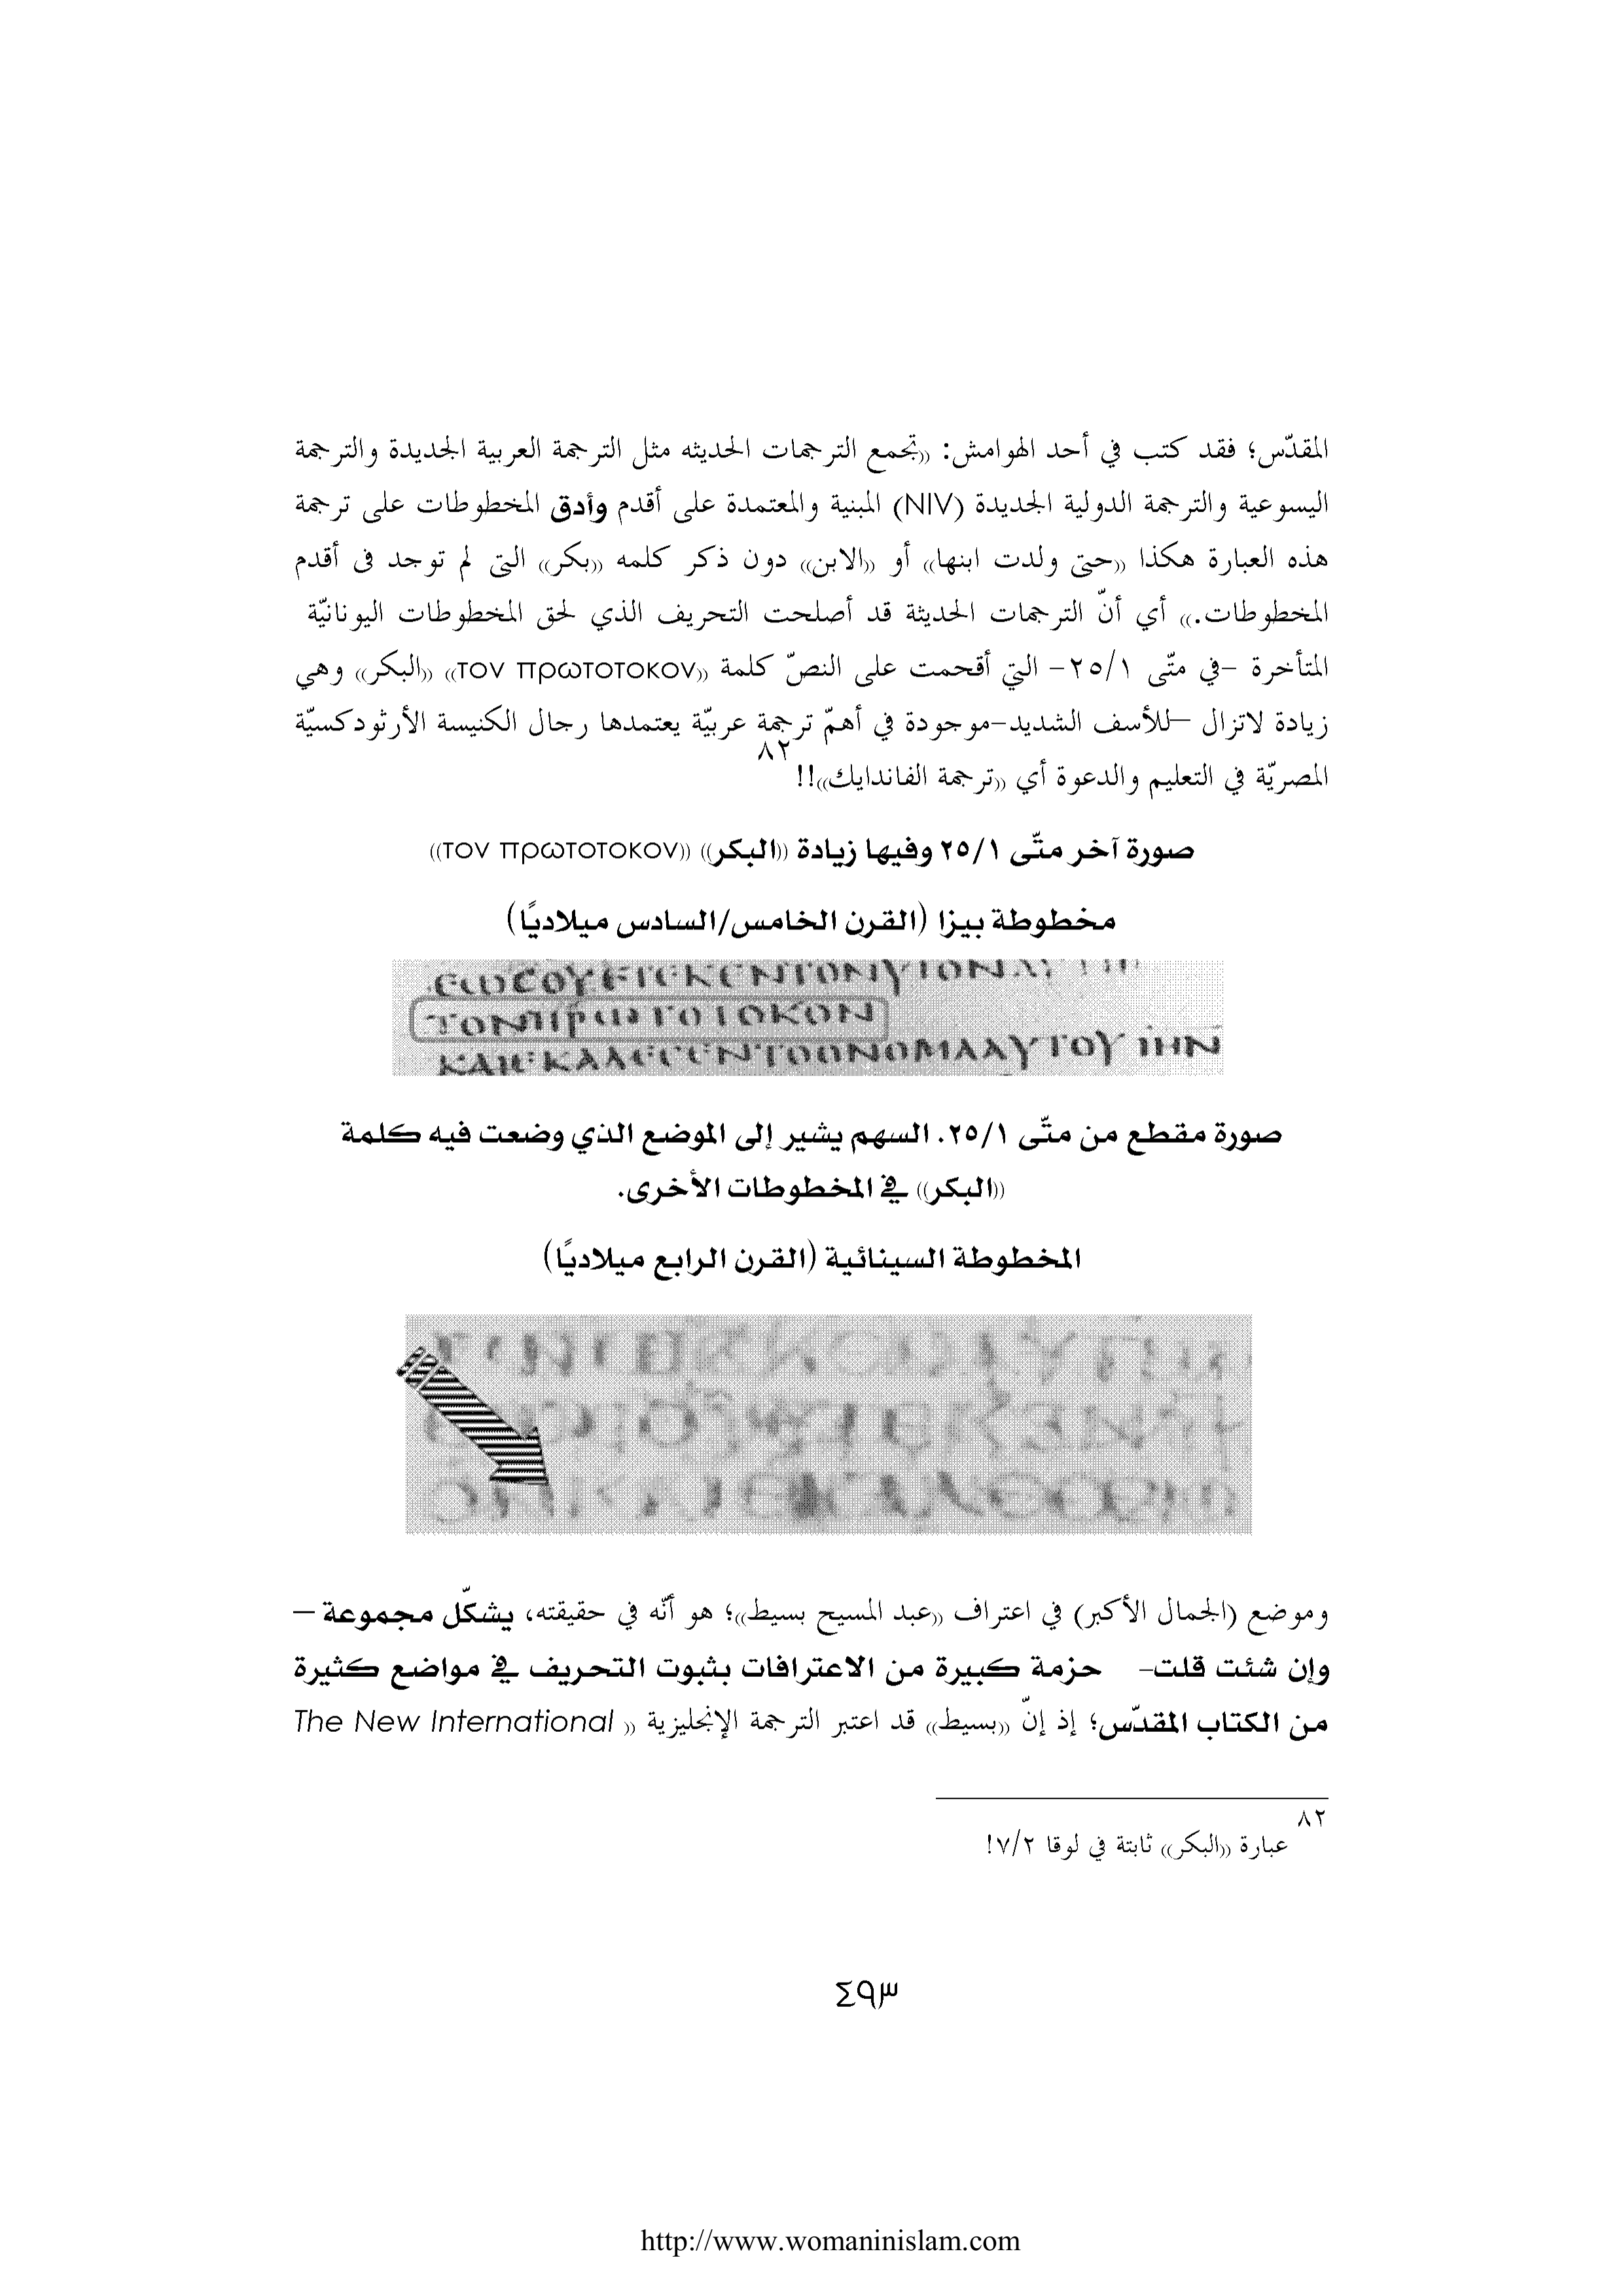 المقدّس؛ فقد كتب في أحد الهوامش: ((تجمع الترجمات الحديثه مثل الترجمة العربية الجديدة والترجمة
اليسوعية والترجمة الدولية الجديدة (NIV) المبنية والمعتمدة على أقدم وأدق المخطوطات على ترجمة
هذه العبارة هكذا ((حتى ولدت ابنها)) أو ((الابن)) دون ذكر كلمه ((بكر)) التى لم توجد فى أقدم
المخطوطات.)) أي أنّ الترجمات الحديثة قد أصلحت التحريف الذي لحق المخطوطات اليونانيّة
المتأخرة -في متّى ٢٥/١- التي أقحمت على النصّ كلمة ((τον πρωτοτοκον)) ((البكر)) وهي
زيادة لاتزال –للأسف الشديد-موجودة في أهمّ ترجمة عربيّة يعتمدها رجال الكنيسة الأرثودكسيّة
المصريّة في التعليم والدعوة أي ((ترجمة الفاندايك))!! ٨٢
صورة آخر متّى ٢٥/١ وفيها زيادة ((البكر)) ((τον πρωτοτοκον))
مخطوطة بيزا (القرن الخامس/السادس ميلاديًا)
ΤΟΝΠΡΩΤΟΤΟΚΟΝ
صورة مقطع من متّى ٢٥/١. السهم يشير إلى الموضع الذي وضعت فيه كلمة
((البكر)) في المخطوطات الأخرى.
المخطوطة السينائية (القرن الرابع ميلاديًا)
وموضع (الجمال الأكبر) في اعتراف ((عبد المسيح بسيط))؛ هو أنّه في حقيقته، يشكّل مجموعة –
وإن شئت قلت- حزمة كبيرة من الاعترافات بثبوت التحريف في مواضع كثيرة
من الكتاب المقدّس؛ إذ إنّ ((بسيط)) قد اعتبر الترجمة الإنجليزية (( The New International
٨٢ عبارة ((البكر)) ثابتة في لوقا ٧/٢!
٤٩٣
http://www.womaninislam.com